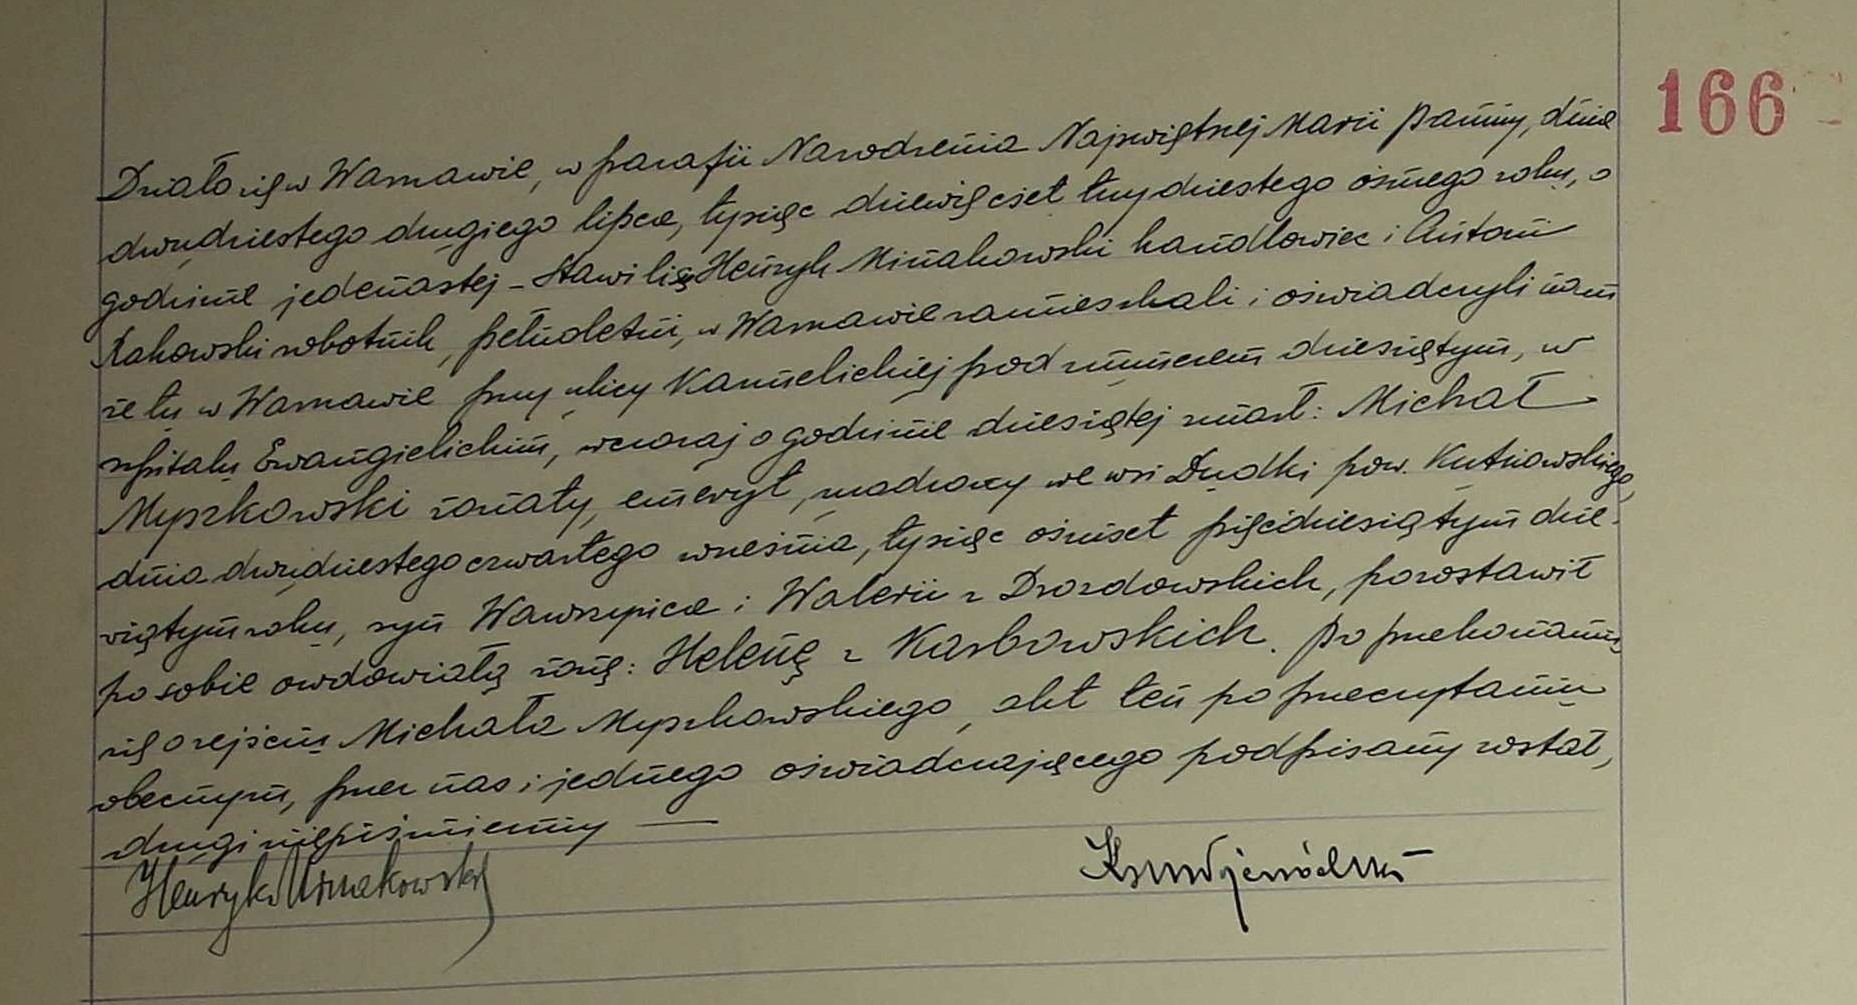 166
Działo się w Warszawie, w parafii Narodzenia Najświętszej Marii Panny, dnia
dwudziestego drugiego lipca, tysiąc dziewięćset trzydziestego ósmego roku, o
godzinie jedenastej – Stawili się Henryk Minakowski handlowiec i Antoni
Kakowski robotnik, pełnoletni, w Warszawie zamieszkali i oświadczyli nam
że tu w Warszawie przy ulicy Karmelickiej pod numerem dziesiątym, w
szpitalu Ewangielickim, wczoraj o godzinie dziesiątej zmarł: Michał
Myszkowski żonaty, emeryt, urodzony we wsi Dudki pow. Kutnowskiego,
dnia dwudziestego czwartego września, tysiąc ośmset pięćdziesiątym dzie-
wiątym roku, syn Wawrzyńca i Walerii z Drozdowskich, pozostawił
po sobie owdowiałą żonę: Helenę z Karbowskich. Po przekonaniu
się o zejściu Michała Myszkowskiego, akt ten po przeczytaniu
obecnym, przez nas i jednego oświadczającego podpisany został,
drugi niepiśmienny —
Henryk Minakowski